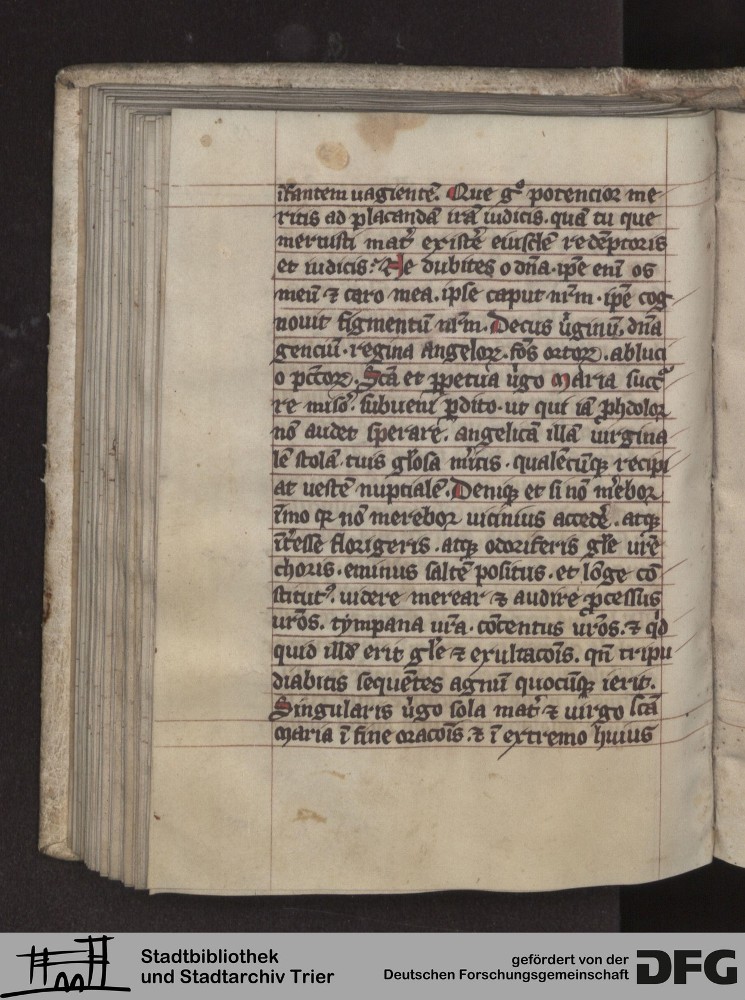 īfantem uagientē. Que gͦ potencior me
ritis ad placandā irā iudicis. quā tu que
meruisti mat᷒ existē eiusdē redēptoris
et iudicis. Ne dubites o dn̄a. ip̄e enī os
meū ⁊ caro mea. ipse caput nr̄m. ip̄e cog
nouit figmentū nr̄m. Decus u͛ginū, dn̄a
genciū. regina angeloꝝ. fōs ortoꝝ. abluci
o pc̄coꝝ. Scā et ꝑpetua u͛go maria succ᷒
re miso᷒. subueni ꝑdito. ut qui iā ꝓh dolor
nō audet sperare. angelicā illā uirgina
lē stolā. tuis gl̄osa m͛itis. qualēcūqꝫ recipi
at uestē nuptialē. Deniqꝫ et si nō m͛ebor
īmo qꝛ nō merebor uicinius accedē. atqꝫ
īt͛esse florigeris. atqꝫ odoriferis gl̄e ur̄e
choris. eminus saltē positus. et lōge cō
stitutꝰ. uidere merear ⁊ audire ꝓcessus
ur̄os. tympana ur̄a. cōcentus ur̄os. ⁊ qͥd
quid illd̄ erit gl̄e ⁊ exultacōis. qn̄ tripu
diabitis sequētes agnū quocūqꝫ ierit.
Singularis u͛go sola mat᷒ ⁊ uirgo scā
maria ī fine oracōis. ⁊ ī extremo huius
Stadtbibliothek
und Stadtarchiv Trier
gefördert von der
Deutschen Forschungsgemeinschaft
DFG